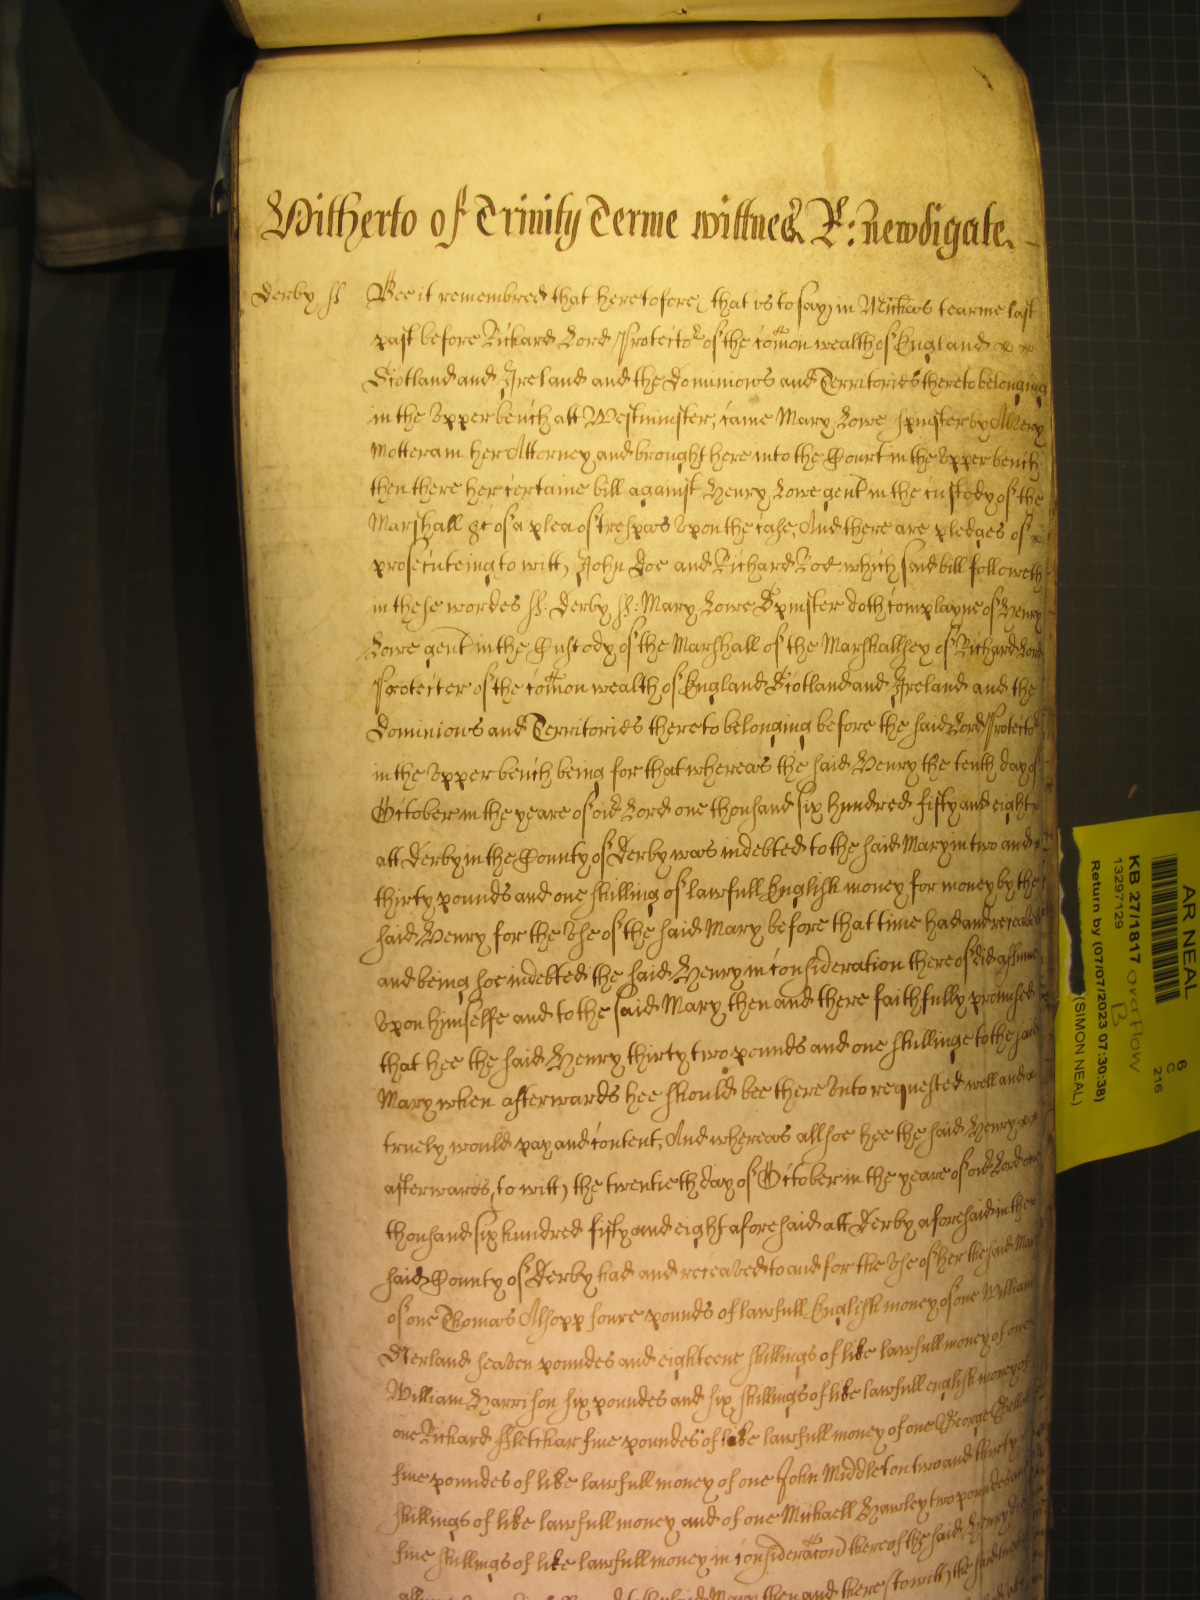 Hitherto of Trinity Terme wittnes R: Newdigate.
Derby ss Bee it remembred that heretofore, that is to say, in Michas tearme last
past before Richard Lord Protector of the comon wealth of England
Scotland and Ireland and the Dominions and Territories thereto belonging
in the upper bench att Westminster, came Mary Lowe spinster by
Motteram her Attorney and brought here into the Court in the upper bench
then there her certaine bill against Henry Lowe gent in the custody of the
Marshall &c of a plea of trespas upon the case, And there are pledges of
prosecuteing to witt, John Doe and Richard Roe which said bill followeth
in these wordes ss: Derby ss: Mary Lowe Spinster doth complayne of Henry
Lowe gent in the Custody of the Marshall of the Marshallsey of Richard Lord
Protecter of the comon wealth of England Scotland and Ireland and the
Dominions and Territories thereto belonging before the said Lord Protector
in the upper bench being for that whereas the said Henry the tenth day of
October in the yeare of oud Lord one thousand six hundred fifty and eight
att Derby in the County of Derby was indebted to the said Mary in two and
thirty pounds and one shilling of lawfull English money for money by the
said Henry for the use of the said Mary before that time had and receaved
and being soe indebted the said Henry in consideration thereof did assume
upon himselfe and to the said Mary then and there faithfully promised
that hee the said Henry thirty two pounds and one shillinge to the said
Mary when afterwards hee should bee there unto requested well and
truely would pay and content, And whereas allsoe hee the said Henry
afterwards, to witt, the twentieth day of October in the yeare of oud Lord one
thousand six hundred fifty and eight aforesaid att Derby aforesaid in the
said County of Derby had and receaved to and for the use of her the said Mary
of one Thomas Alsopp foure pounds of lawfull English money of one William
seaven poundes and eighteene shillings of like lawfull money of one
William Harrison six poundes and six shillings of like lawfull english money of
one Richard Fletchar five poundes of like lawfull money of one George
five poundes of like lawfull money of one John Middleton two and thirty
shillings of like lawfull money and of one Michaell Hawley two poundes and
five shillings of like lawfull money in consideracon thereof the said Henry
the said Mary then and there (to witt) the
AR NEAL
KB 27/1817 overflow
B
13297129
Return by (07/07/2023 07:30:38)
(SIMON NEAL)
6
C
216